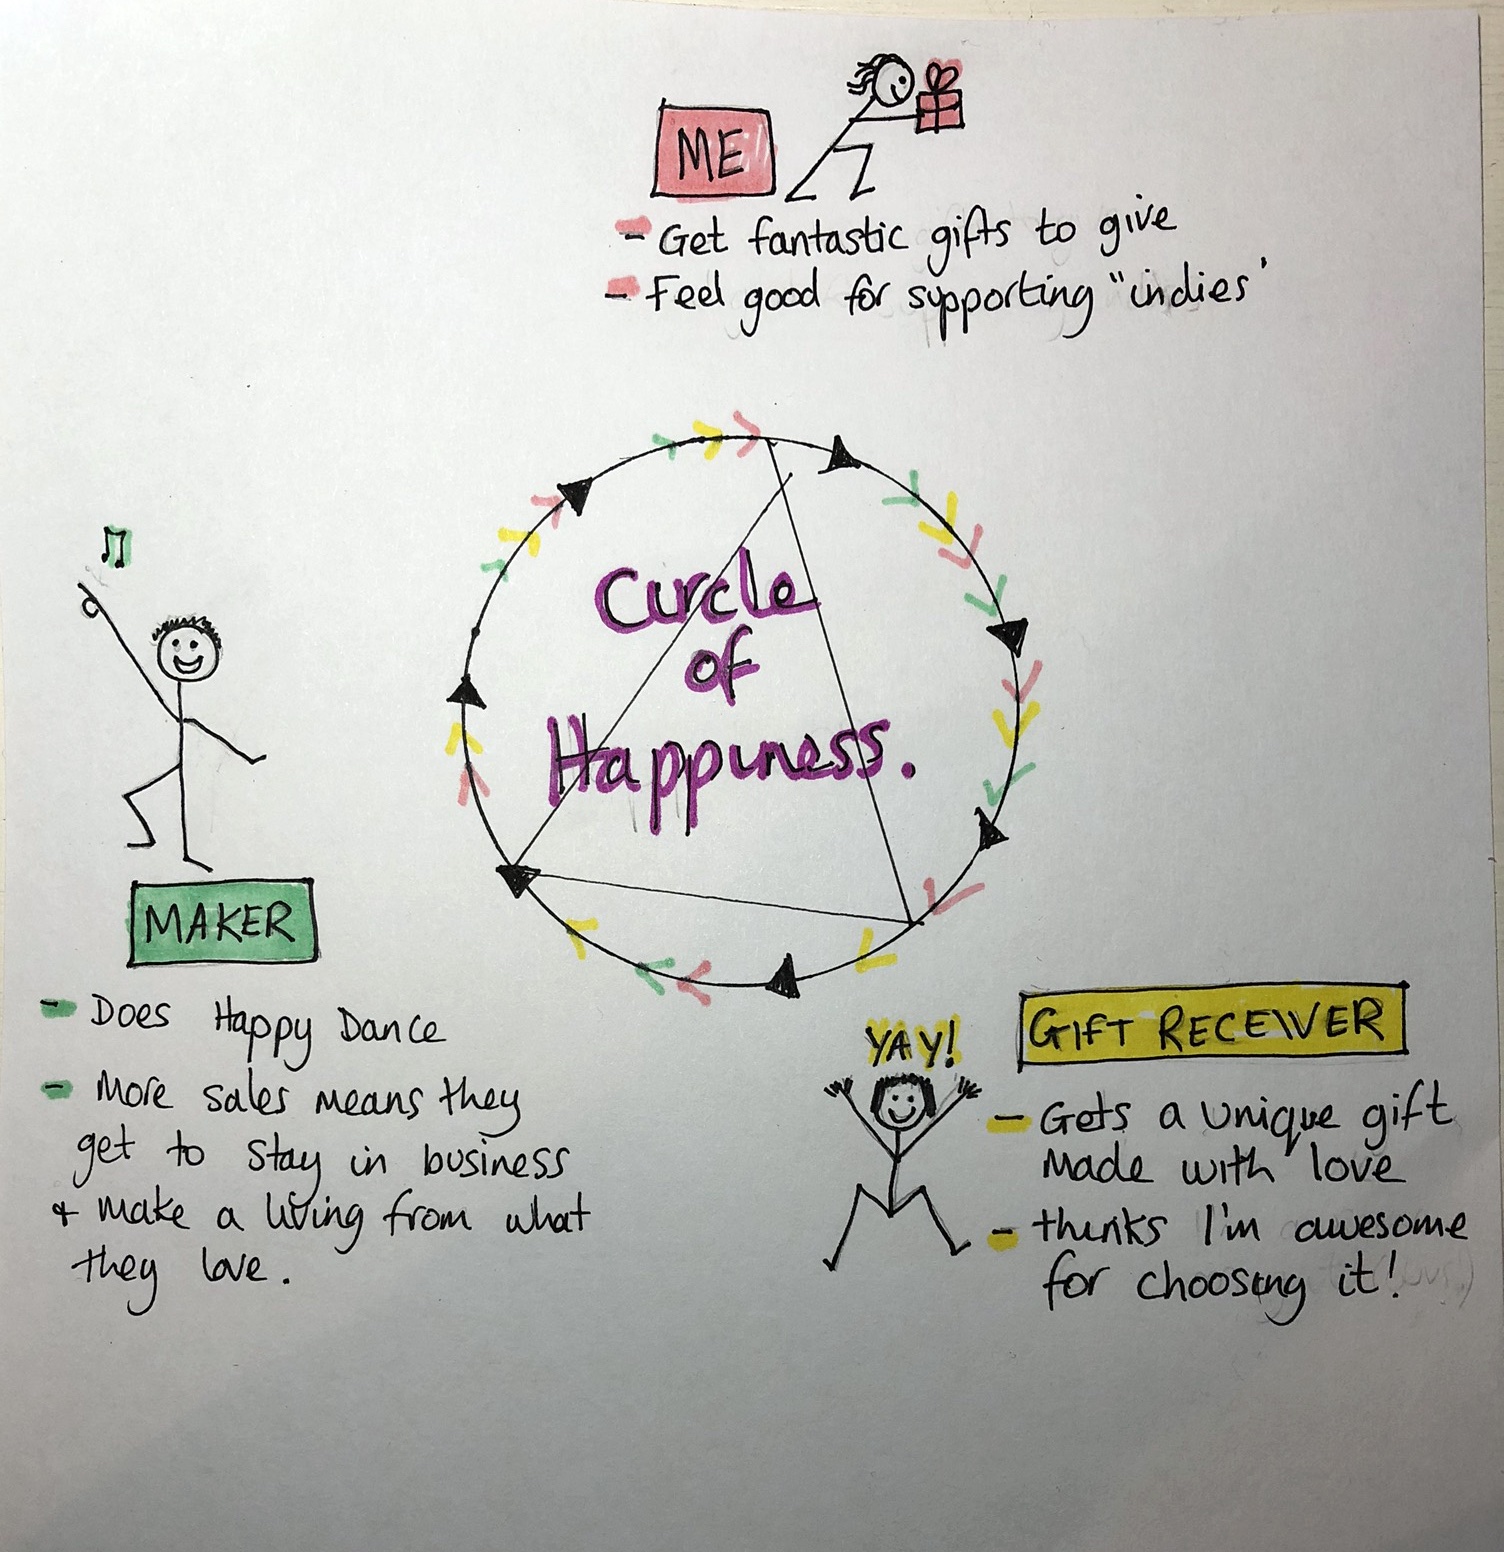 ME
- Get fantastic gifts to give
- Feel good for supporting "indies'
Circle
of
Happiness.
MAKER
- Does Happy Dance
- More sales means they
get to stay in business
& make a living from what
they love.
YAY!
GIFT RECEIVER
- Gets a unique gift
made with love
- thinks I'm awesome
for choosing it!